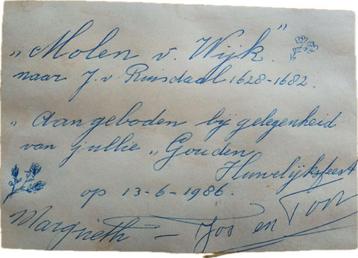 "Molen v. Wijk."
naar J. v Ruisdaal 1628-1682.
"Aangeboden bij gelegenheid
van jullie "Gouden
Huwelijksfeest
op 13-6-1986.
Margrieth - Jos en Toos